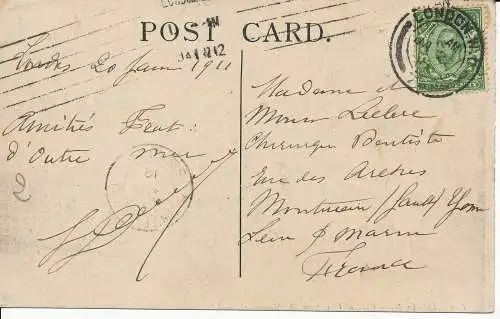 POST CARD.
JA 1 12
LONDON W.C
Londres 20 Janv 1911
Amitiés
d'Outre mer
Madame et
Monsr Leclerc
Chirurgien Dentiste
Rue des
Montereau / fault / Yonne
Seine & Marne
France